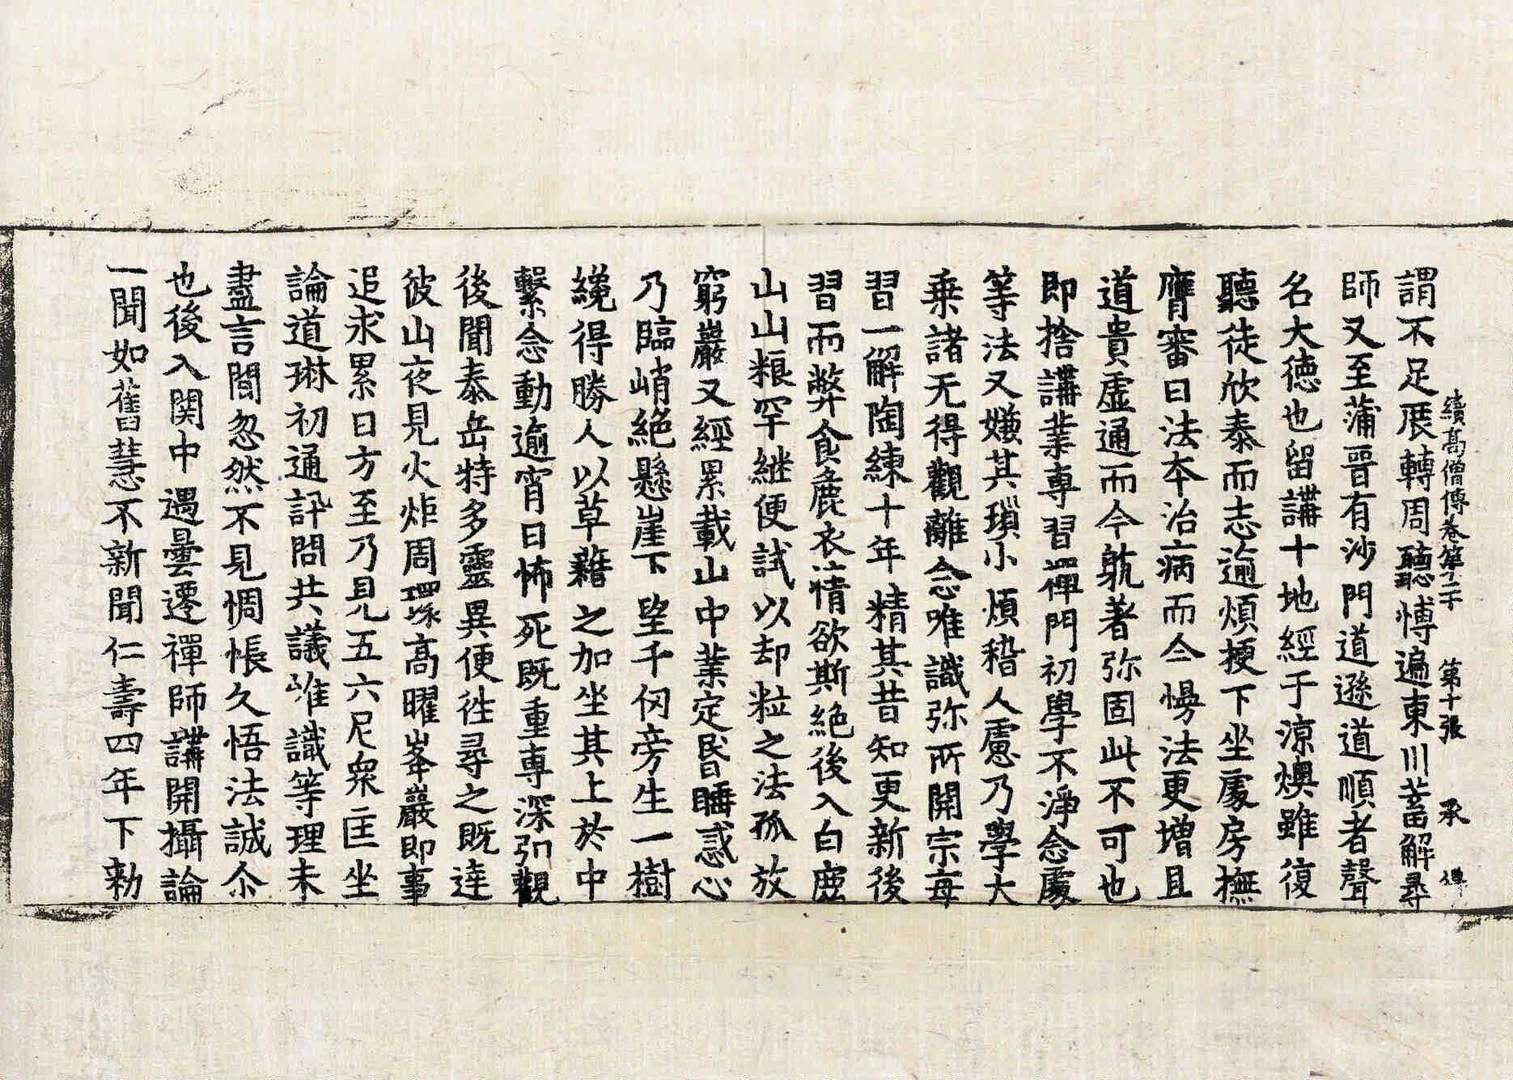 續高僧傳卷第二十 第十張 承
謂不足展轉周聽博遍東川蓄解尋
師又至蒲晉有沙門道遜道順者聲
名大德也留講十地經于涼燠雖復
聽徒欣泰而志逾煩梗下坐處房撫
膺審曰法本治病而今慢法更增且
道貴虛通而今躭著弥固此不可也
即捨講業專習禪門初學不淨念處
等法又嫌其瑣小煩稽人慮乃學大
乗諸无得觀離念唯識弥所開宗每
習一解陶練十年精其昔知更新後
習而弊食麁衣情欲斯絕後入白鹿
山山粮罕継便試以却粒之法孤放
窮巖又經累載山中業定昏睡惑心
乃臨峭絕懸崖下望千仞旁生一樹
纔得勝人以草藉之加坐其上於中
繫念動逾宵日怖死既重專深弘觀
後聞泰岳特多靈異便往尋之既達
彼山夜見火炬周環高曜峯巖即事
追求累日方至乃見五六尼衆匡坐
論道琳初通訊問共議唯識等理未
盡言間忽然不見惆悵久悟法誠尒
也後入関中遇曇遷禪師講開攝論
一聞如舊慧不新聞仁壽四年下勑